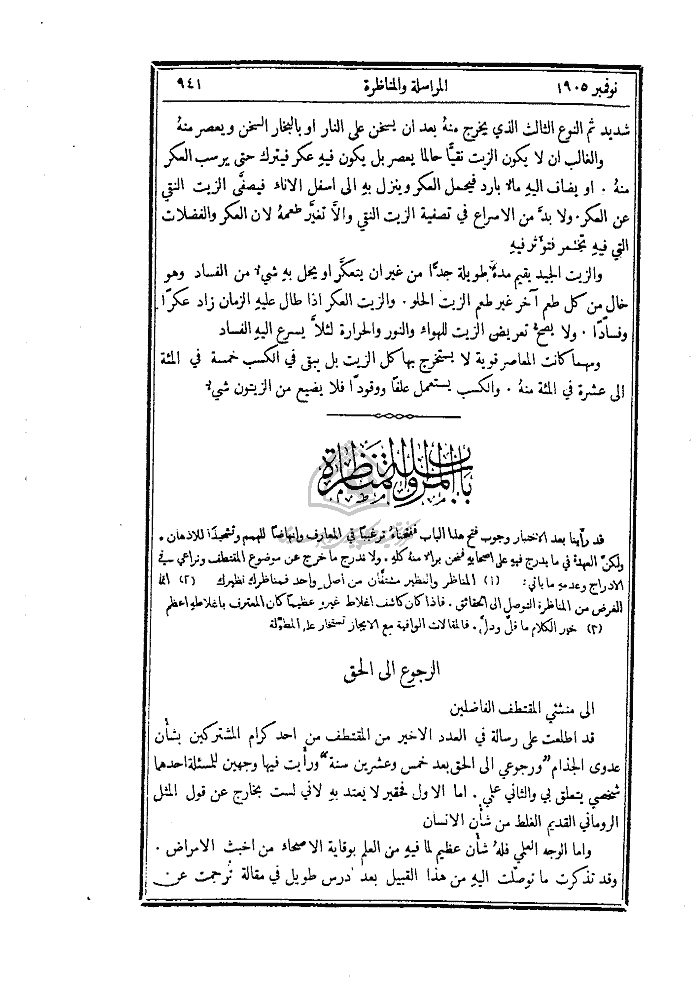 نوفمبر ١٩٠٥ المراسلة والمناظرة ٩٤١
شديد ثم النوع الثالث الذي يخرج منهُ بعد ان يسخن على النار او بالبخار السخن ويعصر منهُ
والغالب ان لا يكون الزيت نقيًّا حالما يعصر بل يكون فيهِ عكر فيترك حتى يرسب العكر
منهُ . او يضاف اليهِ ماءٌ بارد فيحمل العكر وينزل بهِ الى اسفل الاناء فيصفَّى الزيت النقي
عن العكر . ولا بدَّ من الاسراع في تصفية الزيت النقي والاَّ تغيَّر طعمهُ لان العكر والفضلات
التي فيهِ تختمر فتؤثر فيهِ
والزيت الجيد يقيم مدةً طويلة جدًّا من غير ان يتعكَّر او يحل بهِ شيءٌ من الفساد وهو
خال من كل طعم آخر غير طعم الزيت الحلو . والزيت العكر اذا طال عليهِ الزمان زاد عكرًا
وفسادًا . ولا يصحُّ تعريض الزيت للهواء والنور والحرارة لئلاَّ يسرع اليهِ الفساد
ومهما كانت المعاصر قوية لا يستخرج بها كل الزيت بل يبقى في الكسب خمسة في المئة
الى عشرة في المئة منهُ . والكسب يستعمل علفًا ووقودًا فلا يضيع من الزيتون شيءٌ
باب المراسلة والمناظرة
قد رأينا بعد الاختبار وجوب فتح هذا الباب ففتحناهُ ترغيبًا في المعارف وانهاضًا للهمم وتشحيذًا للاذهان .
ولكنَّ العهدة في ما يدرج فيهِ على اصحابهِ فنحن برالا منهُ كلهِ . ولا ندرج ما خرج عن موضوع المقتطف ونراعي في
الادراج وعدمهِ ما يأتي : (١) المناظر والنظير مشتقَّان من اصل واحد فمناظرك نظيرك (٢) انما
الغرض من المناظرة التوصل الى الحقائق . فاذا كان كاشف اغلاط غيرهِ عظيمًا كان المعترف باغلاطهِ اعظم
(٣) خير الكلام ما قلَّ ودلَّ . فالمقالات الوافية مع الايجاز تستخار على المطوَّلة
الرجوع الى الحق
الى منشئي المقتطف الفاضلين
قد اطلعت على رسالة في العدد الاخير من المقتطف من احد كرام المشتركين بشأن
عدوى الجذام "ورجوعي الى الحق بعد خمس وعشرين سنة" ورأيت فيها وجهين للمسئلة احدهما
شخصي يتعلق بي والثاني علمي . اما الاول فحقير لا يعتد بهِ لاني لست بخارج عن قول المثل
الروماني القديم الغلط من شأن الانسان
واما الوجه العلمي فلهُ شأن عظيم لما فيهِ من العلم بوقاية الاصحاء من اخبث الامراض .
وقد تذكرت ما توصَّلت اليهِ من هذا القبيل بعد درس طويل في مقالة تُرجمت عن